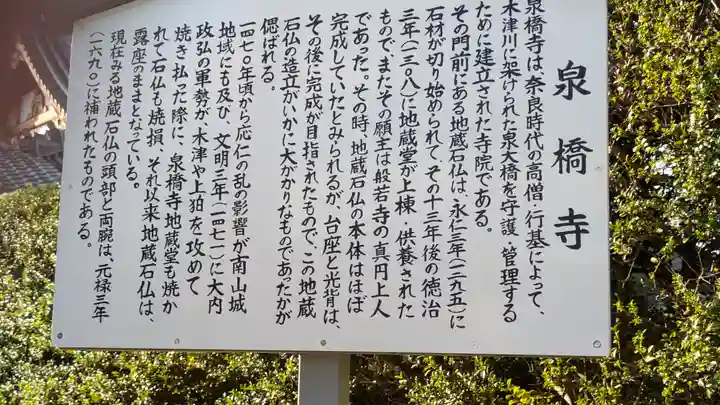 泉橋寺
泉橋寺は奈良時代の高僧・行基によって、
木津川に架けられた泉大橋を守護・管理する
ために建立された寺院である。
その門前にある地蔵石仏は、永仁三年(一二九五)に
石材が切り始められて、その十三年後の徳治
三年(一三〇八)に地蔵堂が上棟・供養された
ものでまたその願主は般若寺の真円上人
であった。その時、地蔵石仏の本体はほぼ
完成していたとみられるが、台座と光背は、
その後に完成が目指されたもので、この地蔵
石仏の造立がいかに大がかりなものであったかが
偲ばれる。
一四七〇年頃から応仁の乱の影響が南山城
地域にも及び、文明三年(一四七一)に大内
政弘の軍勢が、木津や上狛を攻めて
焼き払った際に、泉橋寺地蔵堂も焼か
れて石仏も焼損、それ以来地蔵石仏は、
露座のままとなっている。
現在みる地蔵石仏の頭部と両腕は、元禄三年
(一六九〇)に補われたものである。